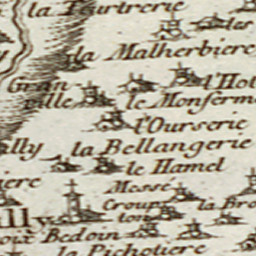 la Tourtrerie
la Malherbiere
l'Hot
Gran
ville
le Monferm
l'Ourserie
lly
la Bellangerie
le Hamel
iere
Mosse
Croup
ton
la Bro
lly
oix
Bedoin
la Pichotiere